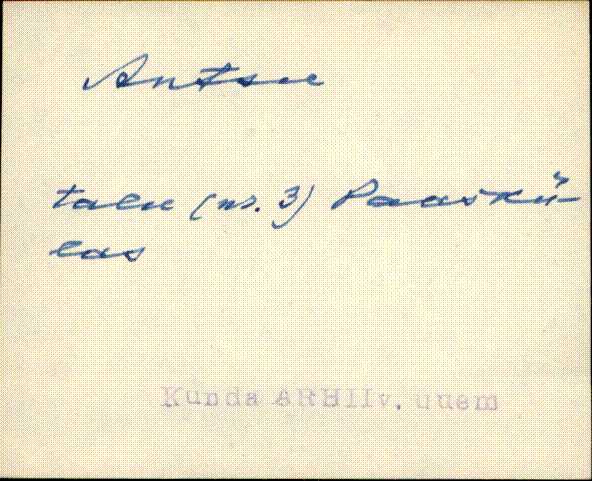 Antsu
talu (nr. 3) Paaskü-
las
Kunda ARHIIv, uuem